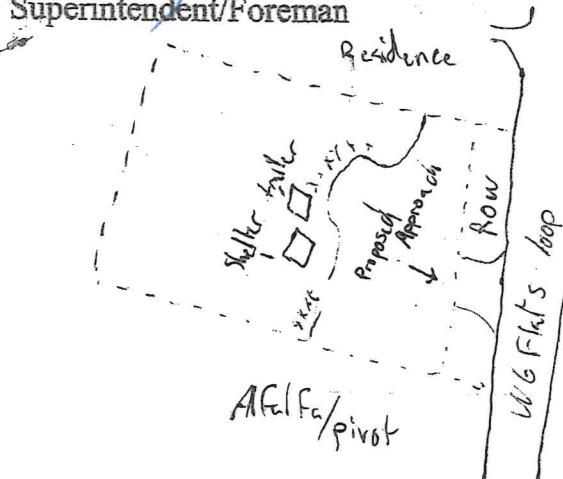 Superintendent/Foreman
Residence
Shelter trailer
Proposed
Approach
ROW
WG Flats loop
Alfalfa/pivot